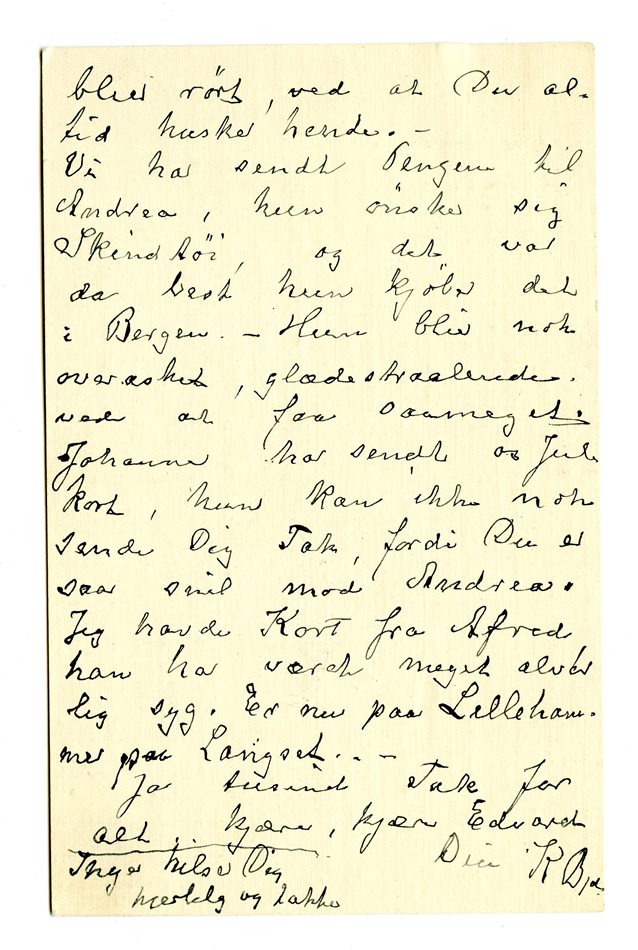 bliver rört, ved at Du al-
tid husker hende. –
Vi har sendt Pengene til
Andrea, hun önsker sig
Skindtöi, og det var
da best hun kjöber det
i Bergen. – Hun bliver nok
overasket, glædestraalende.
ved at faa saameget.
Johanne har sendt os Jule
kort, hun kan ikke nok
sende Dig Tak, fordi Du er
saa snil mod Andrea.
Jeg havde Kort fra Alfred
han har været meget alvor
lig syg. Er nu paa Lilleham-
mer paa Langset. . –
Ja tusind Tak for
alt, kjære, kjære Edvard
Din K B
Inger hilser Dig
hjertelig og takker